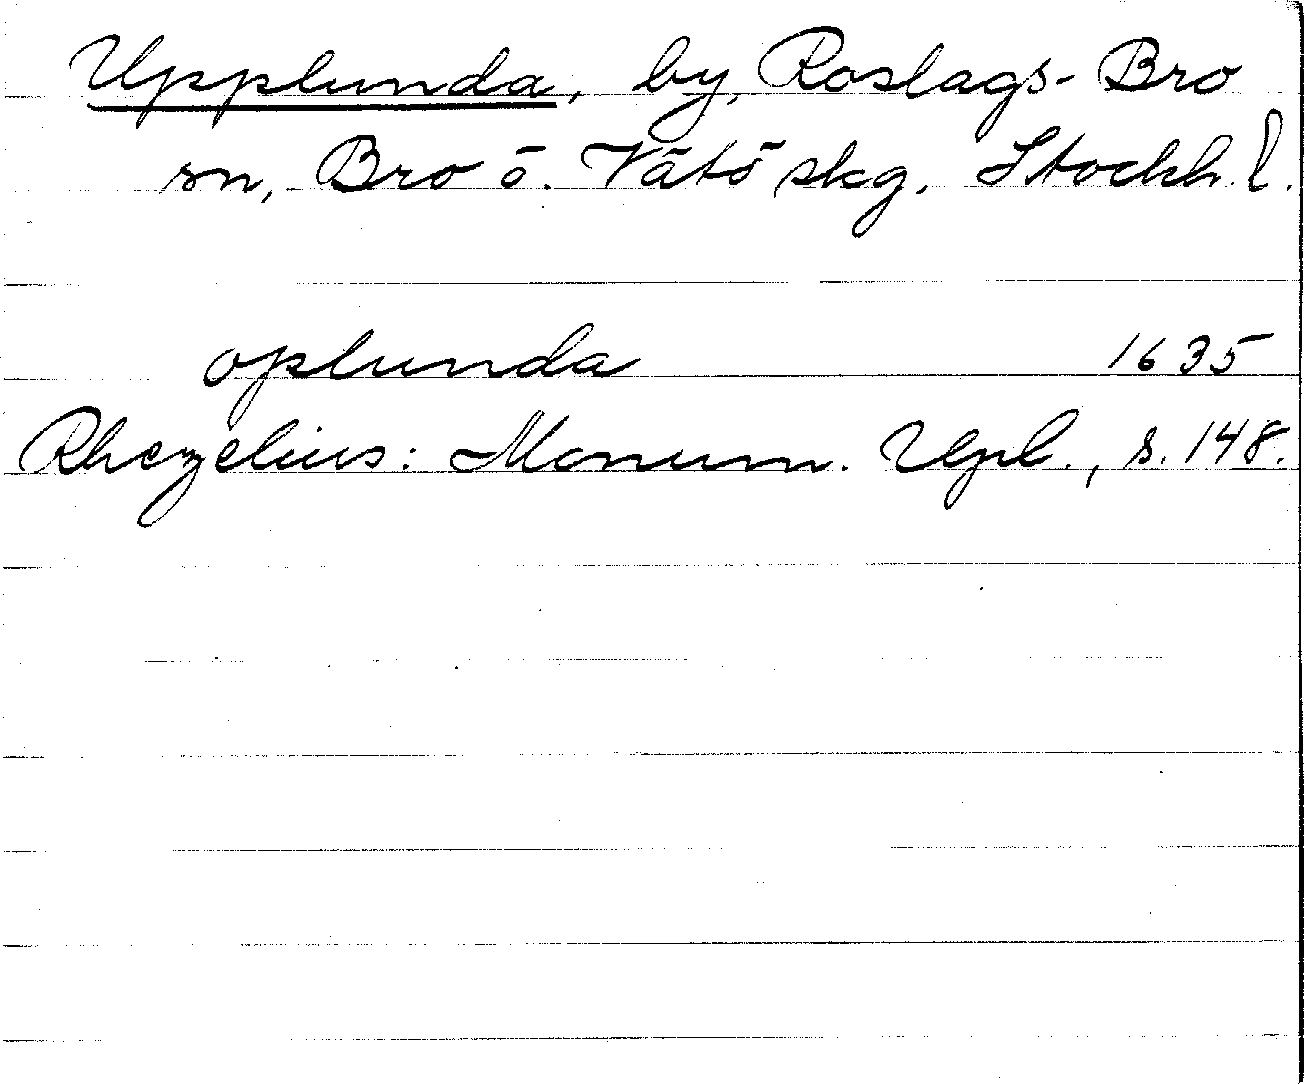 Upplunda, by, Roslags-Bro
sn, Bro ö. Vätö skg. Stockh. l.
oplunda 1635
Rhezelius: Monum. Upl., s. 148.